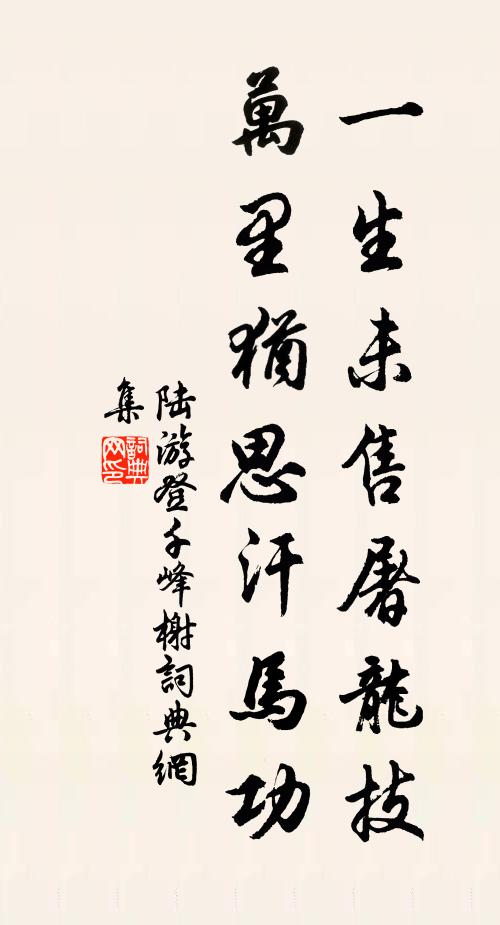 一生未售屠龍技
萬里猶思汗馬功
陆游登千峰榭詞典網
集
詞典
網印